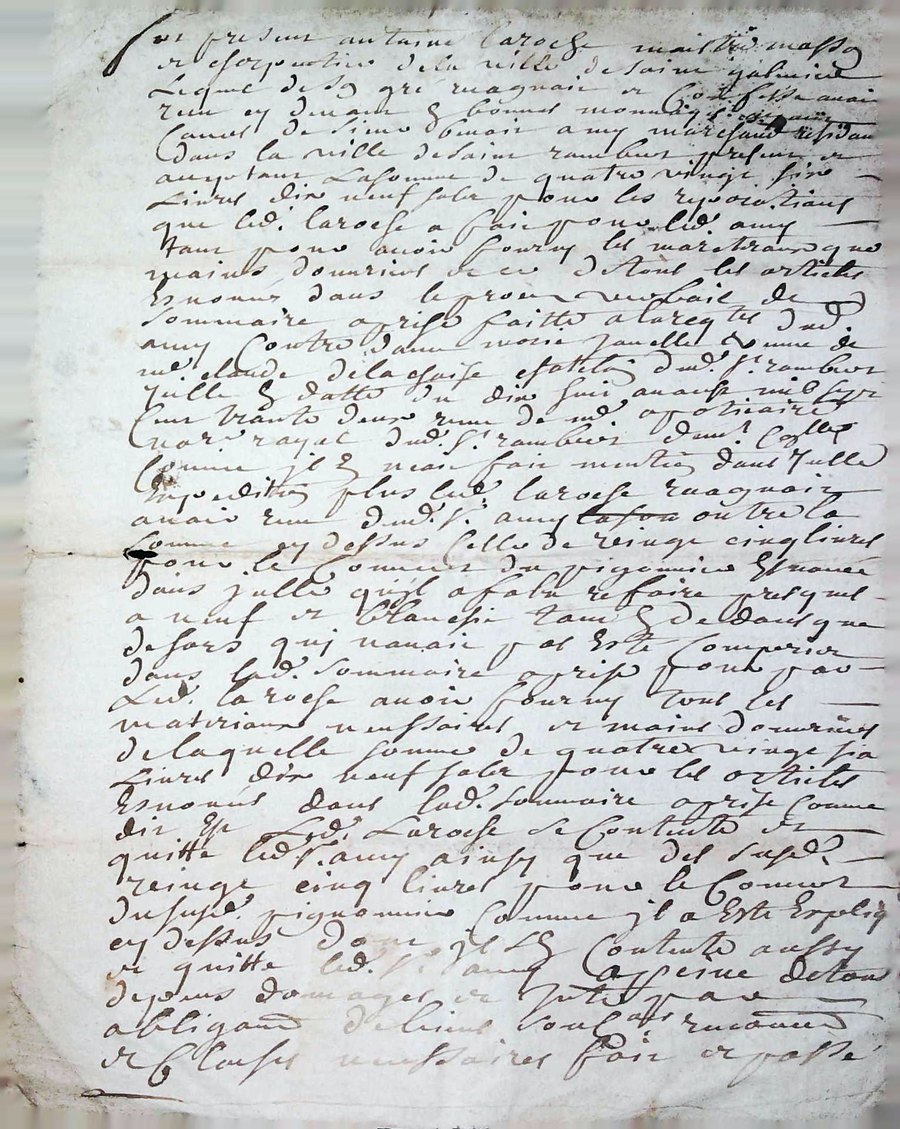 fut present antoine laroche maistre masson
et charpentier de la ville de saint galmier
Lequel de son gré recognoit et Confesse avoir
receu en deniers et bonnes monnoyes
Cours de sieur Benoit amy marchand residan
dans la ville de saint rambert present et
aceptant La somme de quatre vingt six
Livres dix neuf sols pour les reparations
que led. laroche a fait pour led. amy
tant pour avoir fourny les materiaux que
mains douvriers et ce de tous les articles
Enoncés dans le procez verbail de
sommaire aprise faitte a la reqte dud.
amy Contre dame marie janelle veuve de
me claude delachaise chatelain dud. St rambert
Jcelle en datte du dix huit aoust mil sept
Cent trante deux receue de me apoticaire
nore royal dud. St rambert
Comme jl en men fait mention dans Jcelle
Expedition plus led. laroche recognoit
avoir receu dud. sr. amy outre la
somme cy dessus celle de vingt cinq livres
pour le Couvert du pigonnier Enoncé
dans jcelle qu'il a falu refaire presque
a neuf et blanchir tant en dedans que
dehors qui navoit pas Esté Comprise
dans lad. sommaire aprise pour par
Led. laroche avoir fourny tous les
materiaux nessaires et mains douvriers
de laquelle somme de quatre vingt six
Livres dix neuf sols pour les articles
Enoncés dans lad. sommaire aprise Comme
dit Est Led. Laroche se Contente et
quitte led. sr. amy ainsy que des susd.
vingt cinq livres pour le Couvert
du susd. pigonnier Comme jl a Esté Expliq
cy dessus dont jl sen Contente aussy
et quitte led. sr. amy a peine de tous
depens domages et par
obligaon de biens soub
et Clauses nessaires fait et passé